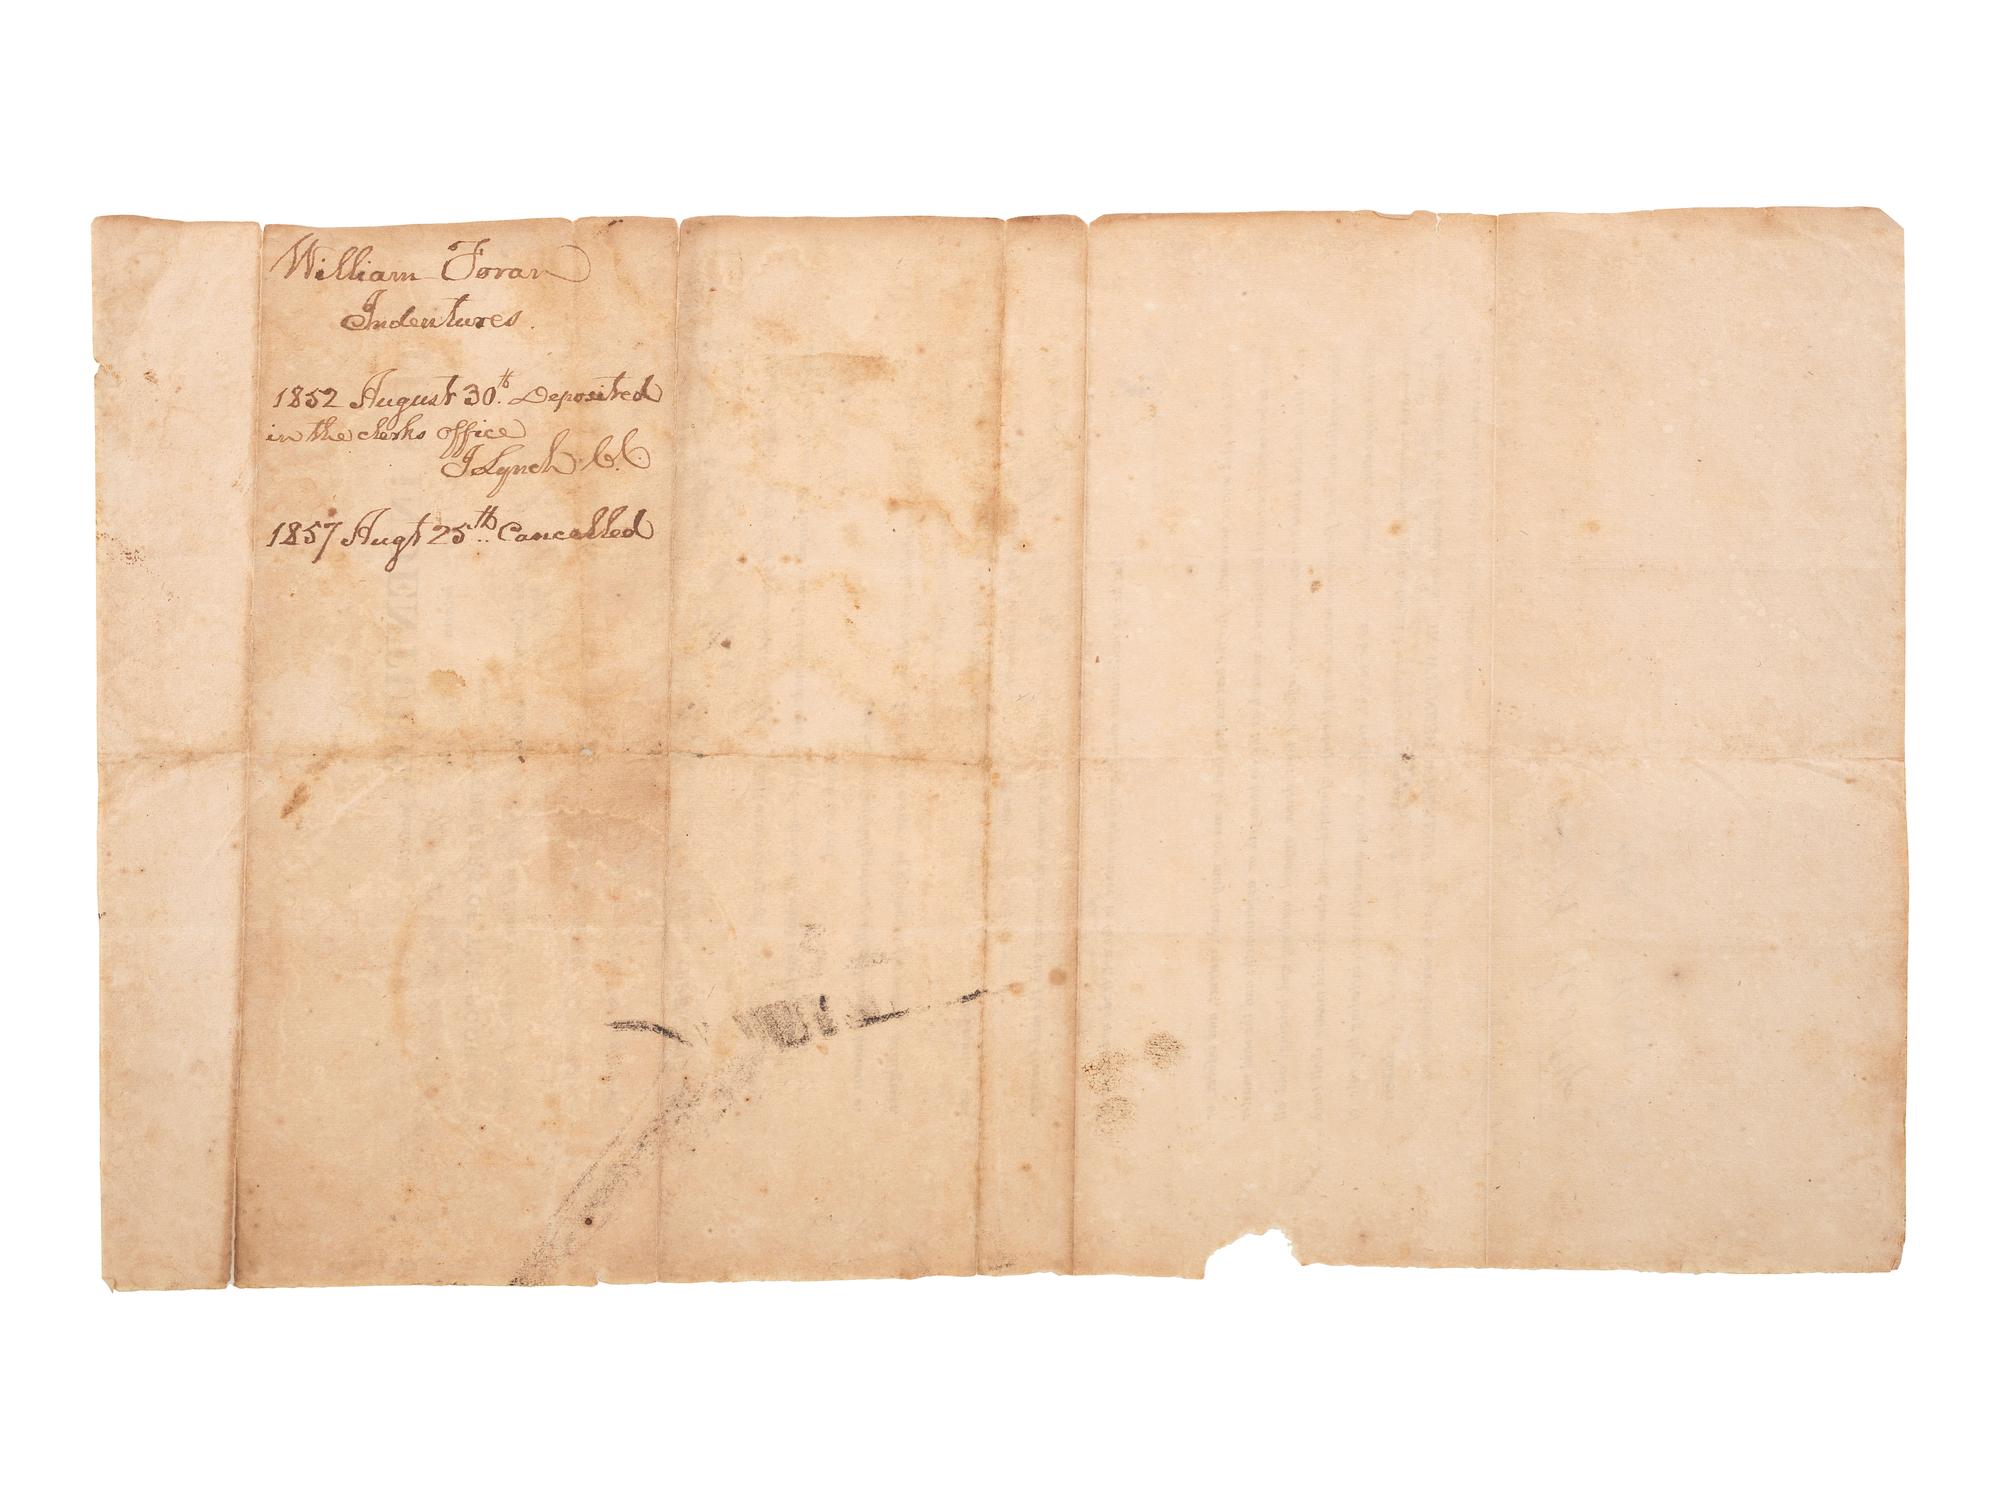 William Foran
Indentures.
1852 August 30th. Deposited
in the clerks office
J Lynch C.C.
1857 Augt 25th.. Cancelled